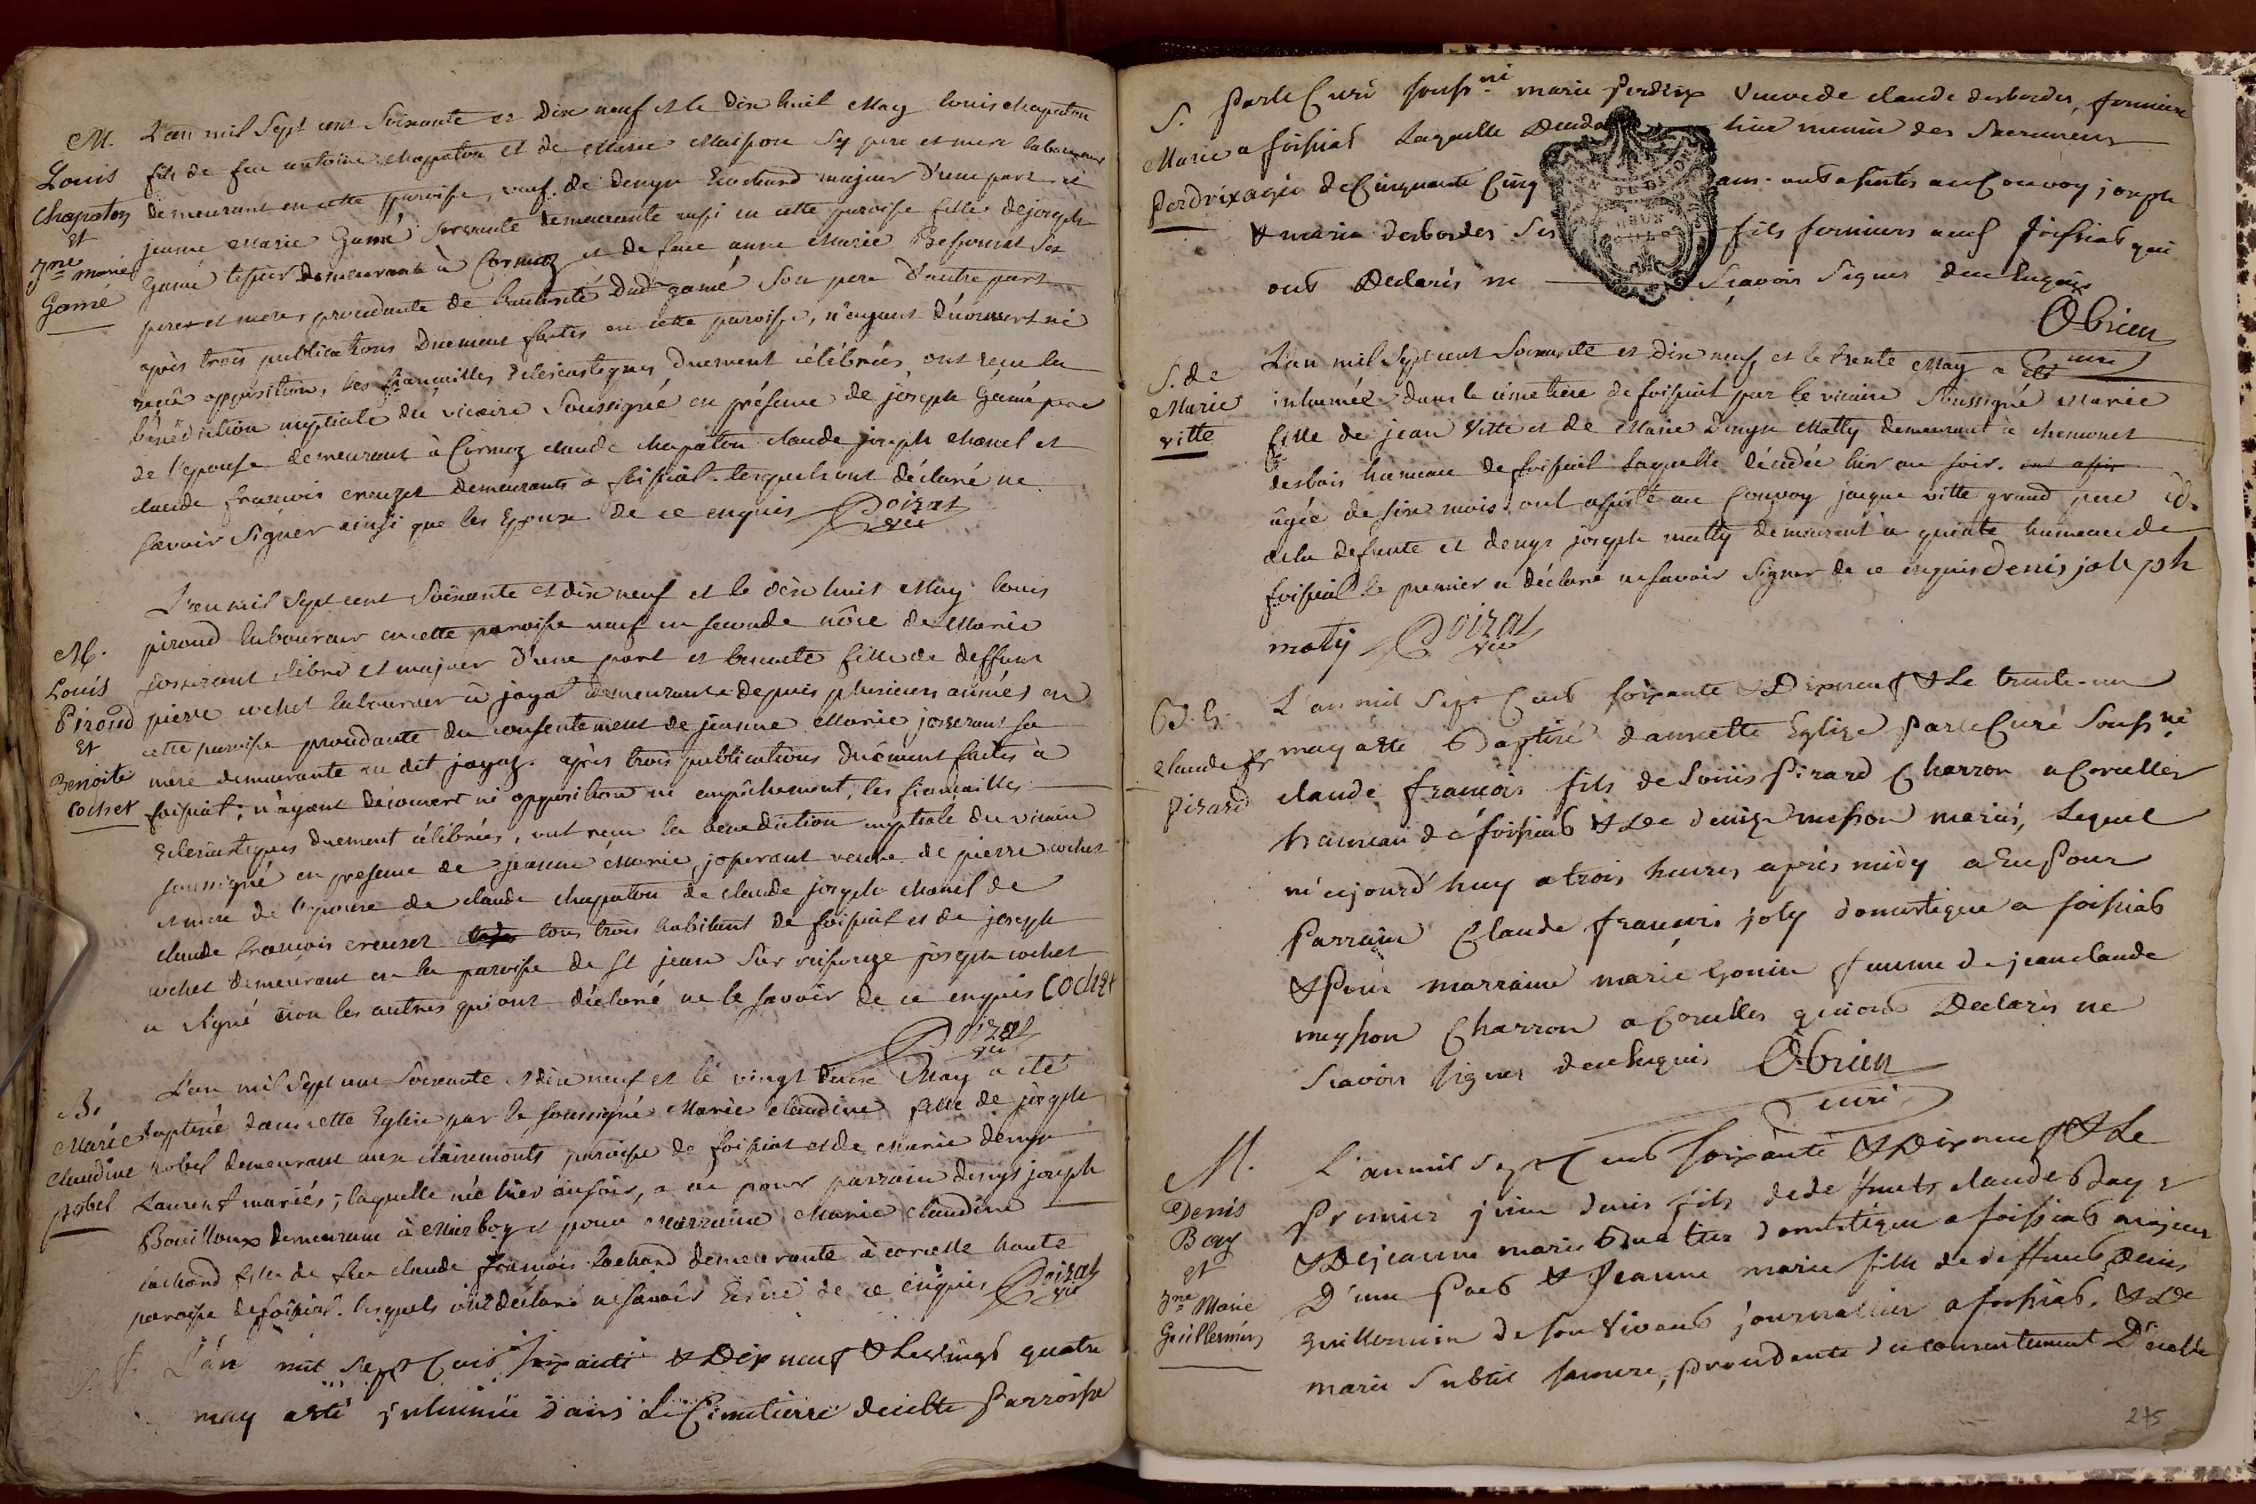 M.
Louis
Chapaton
et
Jne marie
Gamé
L'an mil Sept cent Soixante et Dix neuf et le dix huit May louis chapaton
fils de feu antoine chapaton et de Marie Maisson Sy pere et mere laboureur
demeurant en cette paroisse, veuf de denyse Rochard majeur d'une part et
jeanne Marie Gamé servante demeurante aussi en cette paroisse fille de joseph
Gamé tissier demeurante à Cormoz et de feue anne Marie Bessonnat Ses
pere et mere, procedante de l'autorité dudt gamé Son pere d'autre part
après trois publications Duement faites en cette paroisse, n'ayant découvert ni
reçû opposition, les fiancailles Eclesiastiques Duement célébrées, ont recu la
bénédiction nuptiale du vicaire Soussigné en présence de joseph Gamé pere
de l'epouse demeurant à Cormoz claude chapaton claude joseph chanel et
claude francois creuzet demeurants à foissiat. lesquels ont déclaré ne
savoir Signer ainsi que les Epoux de ce enquis Poizat
vic
M.
Louis
Piroud
et
Benoite
Cochet
L'an mil Sept cent Soixante et dix neuf et le dix huit May louis
piroud laboureur en cette paroisse veuf en seconde nôce de Marie
josserant libre et majeur d'une part et benoite fille de deffunt
pierre cochet laboureur à jayat demeurante depuis plusieurs années en
cette paroisse procedante du consentement de jeanne Marie josserant sa
mere demeurante au dit jayat. après trois publications Duement faites à
foissiat; n'ayant decouvert ni opposition ni empêchement, les fiancailles
Eclesiastiques duement célébrées, ont reçu la benediction nuptiale du vicaire
soussigné en presence de jeanne Marie josserant veuve de pierre cochet
et mere de l'epouse de claude chapaton de claude joseph chanel de
claude francois creuset tous trois habitant de foissiat et de joseph
cochet demeurant en la paroisse de St jean Sur reissouze joseph cochet
a signé non les autres qui ont déclaré ne le savoir de ce enquis Cochet
Poizat
vic
B.
Marie
Claudine
Robel
L'an mil Sept cent Soixante et dix neuf et le vingt deux May a été
baptisée dans cette Eglise par le soussigné Marie Claudine fille de joseph
Robel demeurant aux clairemonts paroisse de foissiat et de Marie denyse
Laurent mariés; laquelle née hier au soir, a eu pour parrain denys joseph
Bouilloux demeurant à Marboz et pour Marraine Marie Claudine
Rochand fille de feu claude françois Rochand demeurante à corcelle haute
paroisse de foissiat. lesquels ont déclaré ne savoir Ecrire de ce enquis Poizat
vic
S. L'an mil Sept Cent soixante & Dix neuf & Le vingt quatre
may a été inhumée dans Le Cimetierre de cette Parroisse
S.
Marie
Perdrix
Par le Curé souss.né marie Perdrix veuve de claude desbordes, fermiere
a foissiat Laquelle Decedée hier munie des Sacremens
agée de Cinquante Cinq ans. ont assistés au Convoy joseph
& marie desbordes Ses fils fermiers aussi foissiat qui
ont Declarés ne Scavoir Signer de ce Enquis
Obrien
curé
S. de
Marie
vitte
L'an mil Sept cent Soixante et Dix neuf et le trente May a été
inhumée dans le cimetiere de foissiat par le vicaire Soussigné Marie
fille de jean Vitte et de Marie Denyse Matty demeurant à chemonet
desbois hameau de foissiat laquelle décédée hier au soir.
âgée de six mois ont assisté au Convoy jacque vitte grand pere
de la defunte et denys joseph matty demeurant à quinte hameau de
foissiat le premier a déclaré ne savoir signer de ce enquis Denis joseph
maty Poizat
vic
Claude fr
Pirard
L'an mil Sept Cent soixante & Dixneuf & Le trente-un
may a été Baptisé dans cette Eglize Par le Curé Souss.né
claude francois fils de Louis Pirard Charron a Corcelles
hameau de foissiat & De denize messon mariés, Lequel
né aujourd'huy a trois heures après midy a Eu Pour
Parrain Claude francois joly domestique a foissiat
& Pour marraine marie gonin femme de jean claude
meysson Charron a Corcelles qui ont Declarés ne
Scavoir signer de ce Enquis Obrien
curé
M.
Denis
Bory
et
Jne Marie
Guillermin
L'an mil sept Cent soixante & Dix neuf & Le
Premier juin denis fils de defunts claude Bory
& De jeanne marie domestique a foissiat majeur
D'une Part & Jeanne marie fille de deffunt Denis
guillermin de son vivant journallier a foissiat. & De
marie Subtil sa mere, procedante du consentement D'icelle
275